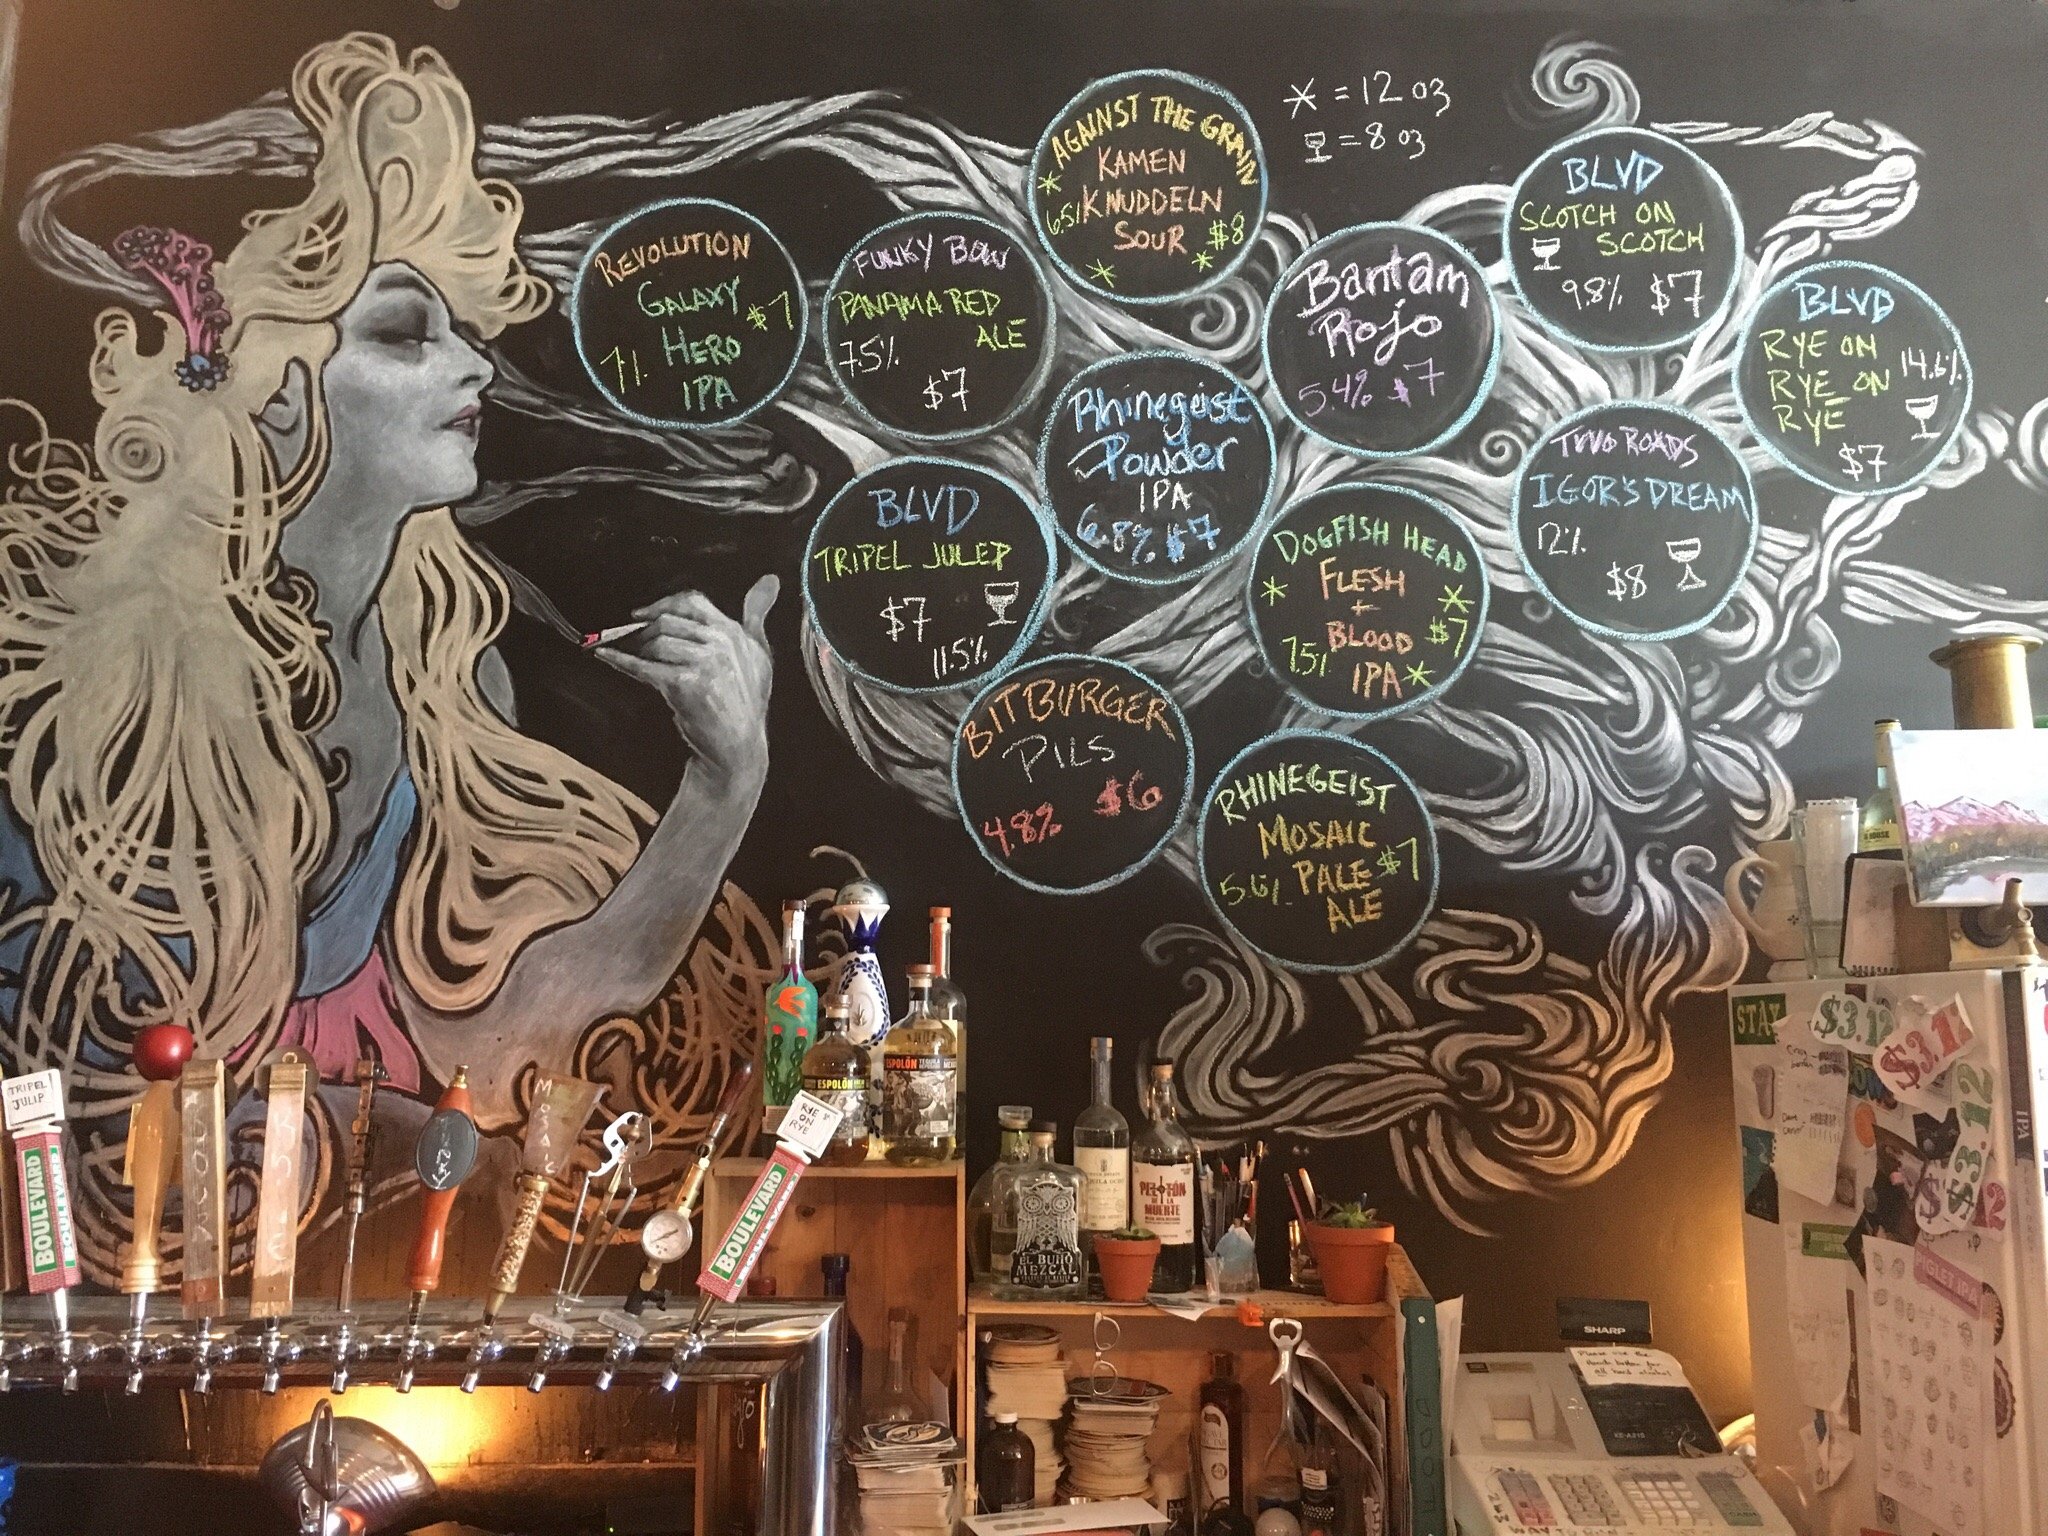 * = 12 oz
= 8 oz
AGAINST THE GRAIN
KAMEN
KNUDDELN
SOUR
6.5%
$8
REVOLUTION
GALAXY
HERO
IPA
$7
7%
FUNKY BOW
PANAMA RED
ALE
7.5%
$7
Bantam
Rojo
5.4% $7
BLVD
SCOTCH ON
SCOTCH
9.8% $7
BLVD
RYE ON
RYE ON
RYE
14.6%
$7
Rhinegeist
Powder
IPA
6.8% $7
BLVD
TRIPEL JULEP
$7
11.5%
DOGFISH HEAD
FLESH
+
BLOOD
IPA
7.5%
$7
TWO ROADS
IGOR'S DREAM
12%
$8
BITBURGER
PILS
4.8% $6
RHINEGEIST
MOSAIC
PALE
ALE
5.6%
$7
TRIPEL
JULIP
BOULEVARD
BOULEVARD
MOSAIC
RYE
ON
RYE
BOULEVARD
ESPOLÒN
ESPOLÒN
PELOTÓN
DE LA
MUERTE
EL BUHO
MEZCAL
STAY
$3.12
$3.12
$3.12
$3.12
PIGLET IPA
IPA
SHARP
Please use the
XE-A21S